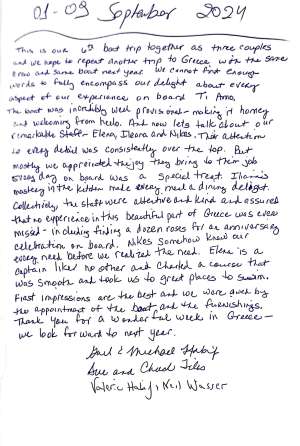 01-09 September 2024
This is our 6th boat trip together as three couples
and we hope to repeat another trip to Greece with the same
crew and same boat next year. We cannot find enough
words to fully encompass our delight about every
aspect of our experience on board Ti Amo.
The boat was incredibly well provisioned - making it homey
and welcoming from hello. And now lets talk about our
remarkable Staff - Elena, Ileana and Nikos. Their attention
to every detail was consistently over the top. But
mostly we appreciated the joy they bring to their job
every day on board was a special treat.
mastery in the kitchen made every meal a dining delight.
Collectively the staff were attentive and kind and assured
that no experience in this beautiful part of Greece was ever
missed - including finding a dozen roses for an anniversary
celebration on board. Nikos somehow knew our
every need before we realized the need. Elena is a
captain like no other and charted a course that
was smooth and took us to great places to swim.
First impressions are the best and we were awed by
the appointment of the boat and the furnishings.
Thank you for a wonderful week in Greece -
we look forward to next year.
Gail & Michael
Sue and Chad
Valerie Neil Wasser